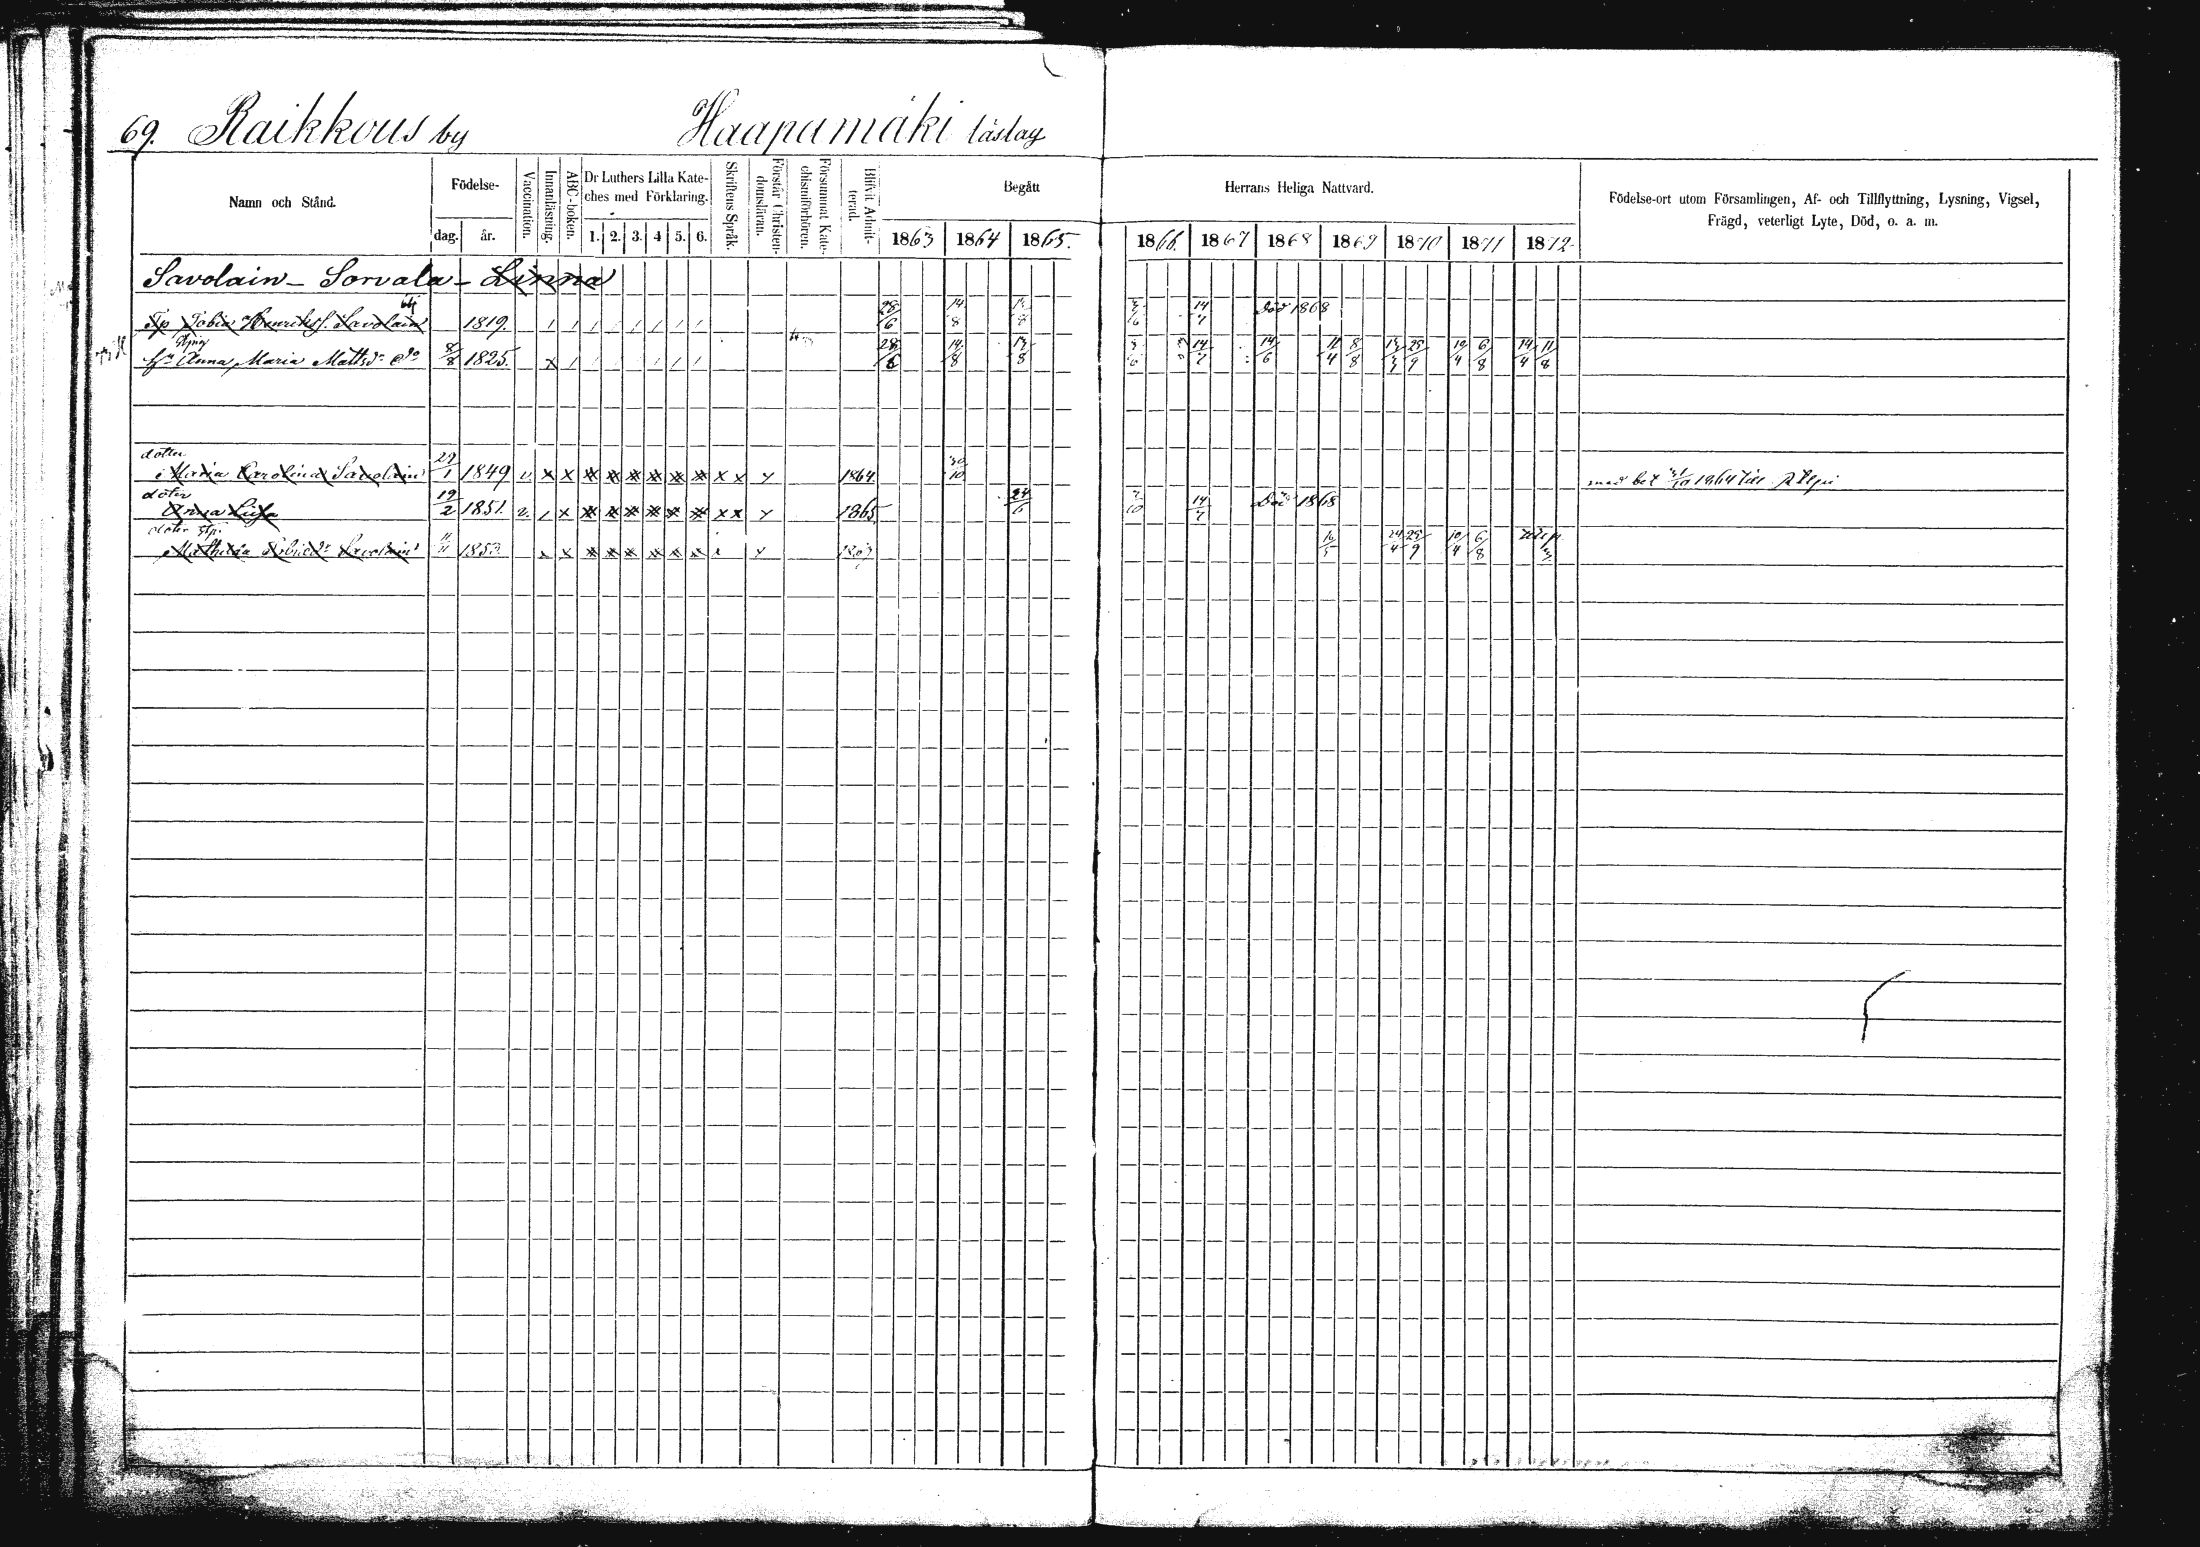 69. Raikkous by Haapamäki läslag
Namn och Stånd. Födelse- dag. år. Vaccination. Innanläsning. ABC-boken. Dr Luthers Lilla Kate-
ches med Förklaring. 1. 2. 3. 4 5. 6. Skriftens Språk. Förstår Christen-
domsläran. Försummat Kate-
chismiförhören. Blifvit Admit-
terad. Begått Herrans Heliga Nattvard.
1863 1864 1865. 1866. 1867 1868 1869 1870 1871 1872
Födelse-ort utom Församlingen, Af- och Tillflyttning, Lysning, Vigsel,
Frägd, veterligt Lyte, Död, o. a. m.
Savolain - Sorvala - Linna
Tobias Henrikss. Savolain 1819. 28/6 14/8 13/8 14/7 död 1868
Anna Maria Mattsdr 8/8 1825. x 28/6 14/8 13/8 14/7 14/6 11/4 8/8 25/9 19/4 6/8 14/4 11/8
dotter
Maria Carolina Savolain 29/1 1849 v. x x x x x x x x x x 1864. 30/10 med bet 31/10 1864 till
doter
Anna Lisa 19/2 1851. v. x x x x x x x x x 1865. 24/6 14/7 Död 1868
doter
Mathilda Savolain 1853. x x x x x x x x x 16/5 24/4 25/9 10/4 6/8